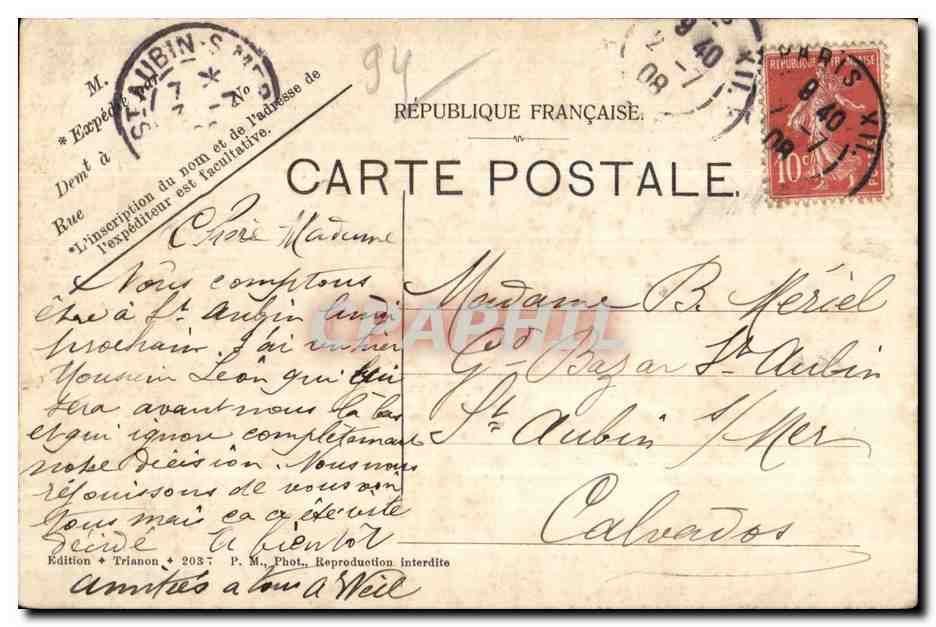 ST AUBIN-S-MER
94
9 40
2 -7
08
XII
RÉPUBLIQUE FRANÇAISE
PARIS XII
9 40
-7
08
10 c
M.
* Expédié par
Nº
Demt à
Rue
*L'inscription du nom et de l'adresse de
l'expéditeur est facultative.
RÉPUBLIQUE FRANÇAISE.
CARTE POSTALE.
Chère Madame
Nous comptons
être à St. Aubin lundi
prochain. J'ai vu hier
Monsieur Léon qui
sera avant nous là bas
et qui ignore complètement
notre décision. Nous nous
réjouissons de vous voir
tous mais ça a été vite
décidé à bientôt
amitiés à tous A Weil
Madame B. Mériel
Gd Bazar St Aubin
St Aubin s/Mer
Calvados
CPAPHIL
Edition + Trianon + 2037 P. M., Phot., Reproduction interdite